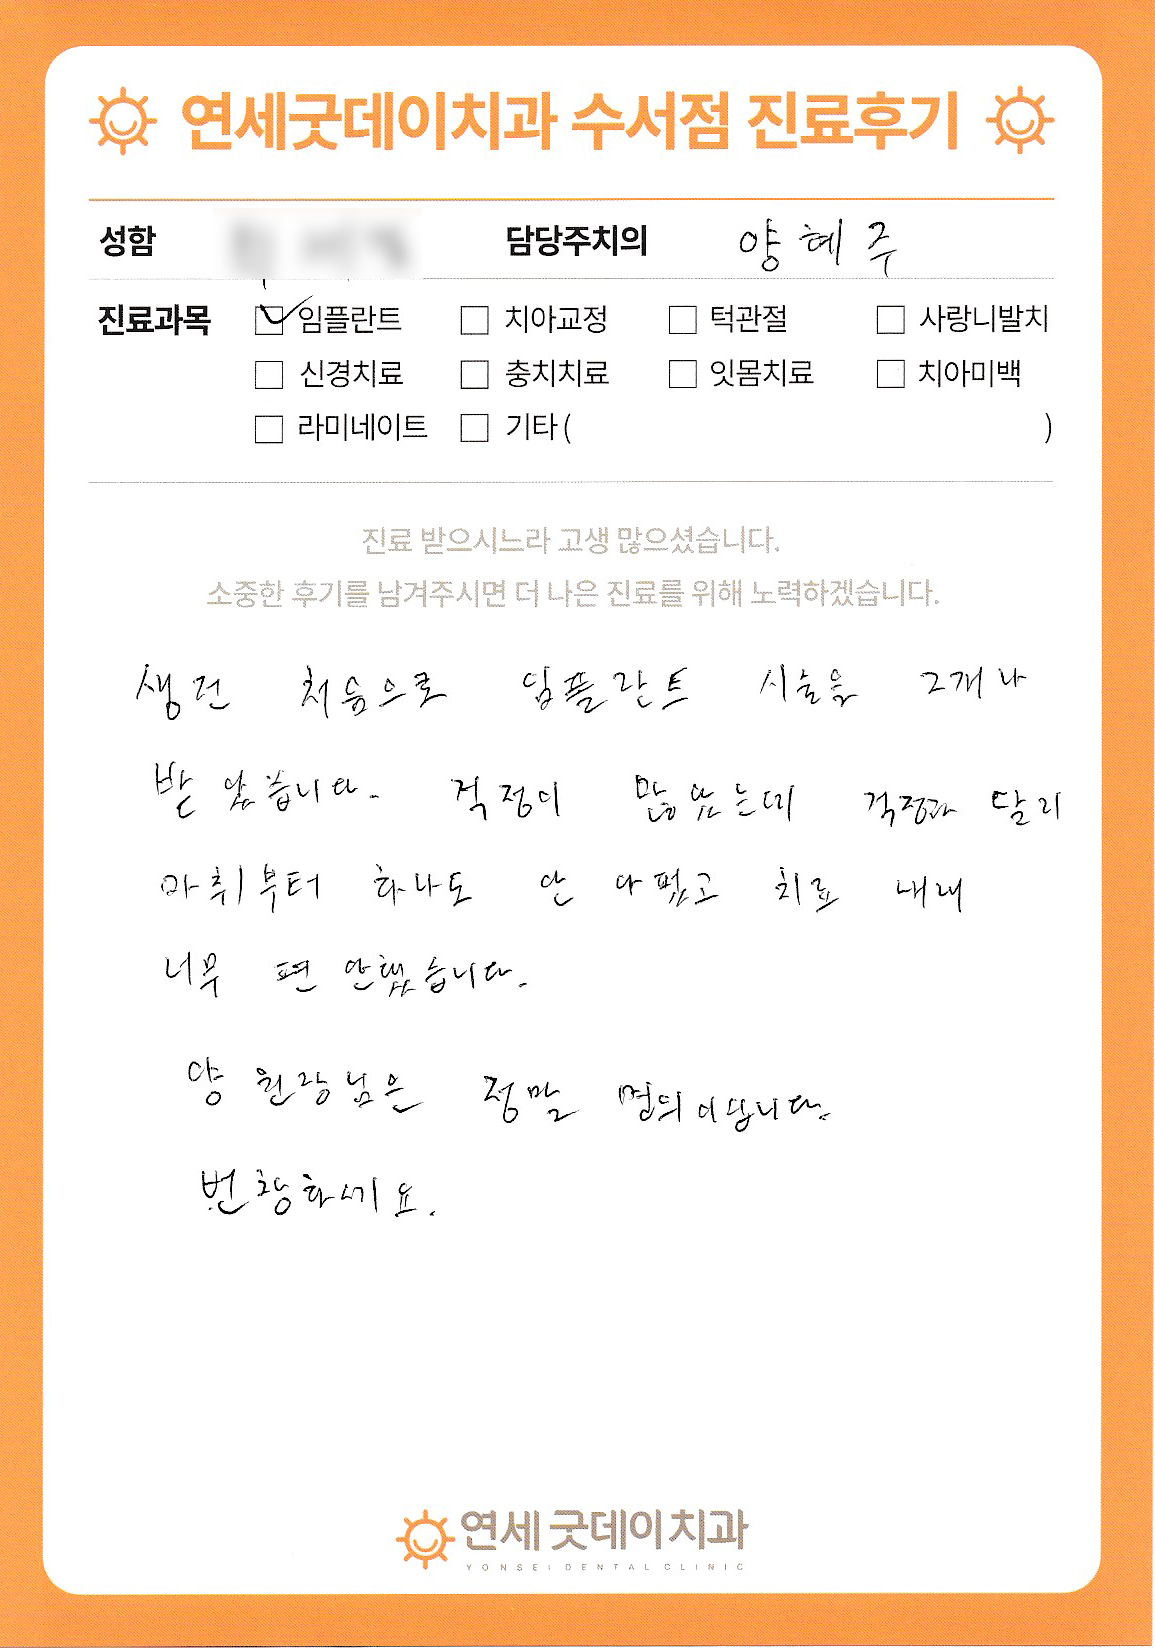 연세굿데이치과 수서점 진료후기
성함 담당주치의 양혜주
진료과목 임플란트 치아교정 턱관절 사랑니발치
신경치료 충치치료 잇몸치료 치아미백
라미네이트 기타( )
진료 받으시느라 고생 많으셨습니다.
소중한 후기를 남겨주시면 더 나은 진료를 위해 노력하겠습니다.
생전 처음으로 임플란트 시술을 2개나
받았습니다. 걱정이 많았는데 걱정과 달리
마취부터 하나도 안 아펐고 치료 내내
너무 편안했습니다.
양 원장님은 정말 명의이십니다.
번창하세요.
연세굿데이치과
YONSEI DENTAL CLINIC